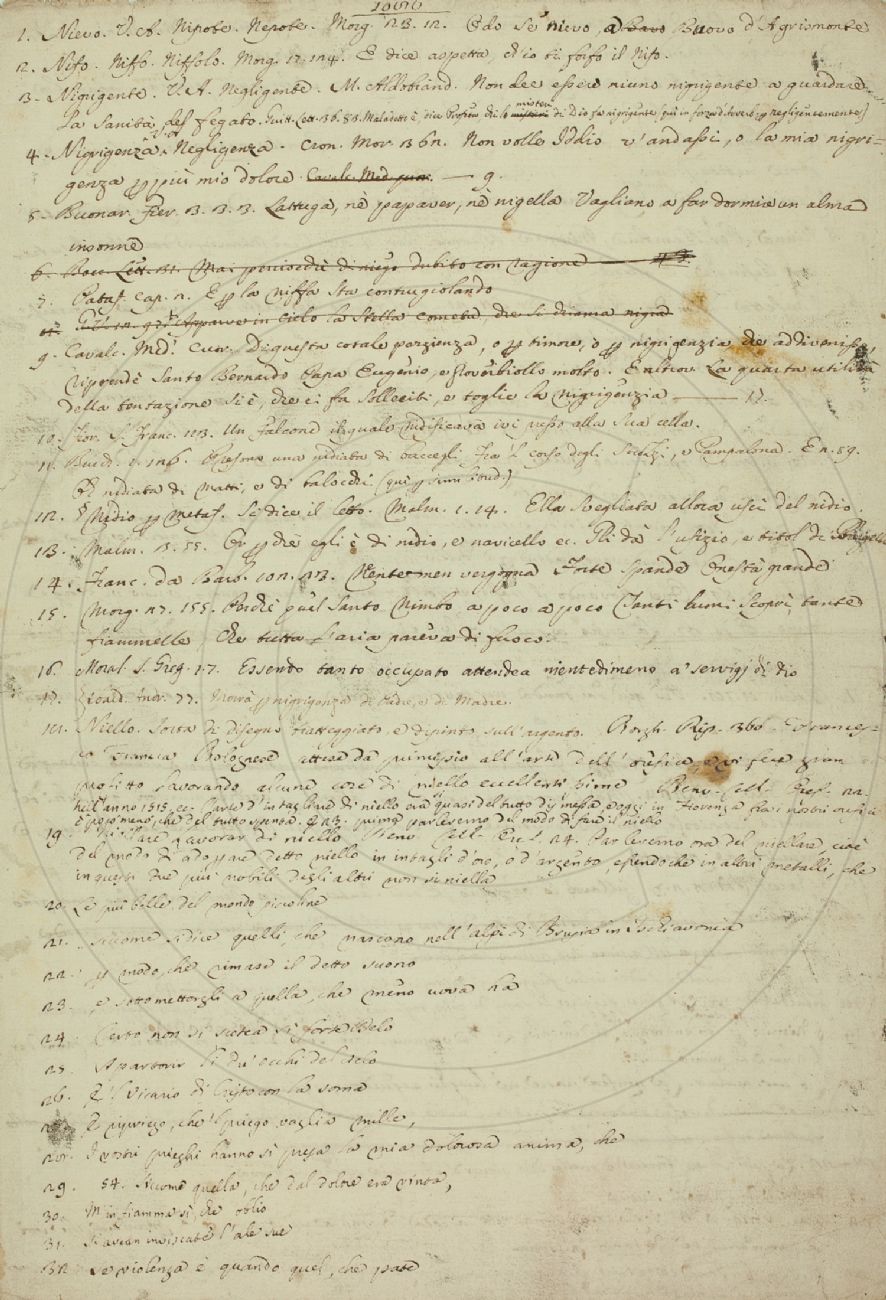 1. Nievo. V. A. Nipote. Nepote. Morg. 23. 12. Odo se' nievo, a Buovo d'Agrismonte
2. Nifo. Niffo. Niffolo. Morg. 17. 124. E dice aspetta, ch'io ti forfo il Nifo.
3. Nigrigente. V. A. Negligente. M. Aldobrand. Non dee essere niuno nigrigente a guardare
la Sanità del fegato. Guitt. Lett. di Dio fa nigrigente
4. Nigrigenza. Negligenza. Cron. Mor. Non volle Iddio v'andassi, o la mia nigri-
genza p più mio dolore. — 9.
5. Buonar. Fier. 3. 3. 3. Lattuga, nè papaver, nè nigella Vagliano a far dormire un alma
insonne
6. Bocc. Lett. Ma perciocchè di niego dubito con ragione
7. Pataf. cap. E p la niffa sta contrugiolando
Apparve in Cielo la stella cometa, che si chiama nigra
9. Cavalc. Med. cuor. Di questa cotale perzienza, o p timore, o p nigrigenzia che addivenisse,
riprende Santo Bernardo Papa Eugenio, e molto. E altrov. La quarta utilità
della tentazione si è, che ci fa solleciti, e toglie la nigrigenzia — 17.
10. Fior. S. Franc. 113. Un falcone il quale nidificava ivi presso alla sua cella.
11. una nidiata di Fra 'l corso degli E n. 59.
nidiata di matti, e di balocchi.
12. Nidio p metaf. Si dice il letto. Malm. 1. 14. Ella svegliata allora uscì del nidio.
13. Malm. 3. 55. Or p che egli è di nidio, e navicello ec. Gli dà l'ufizio, e titol di
14. Franc. da Barb. vergogna Forte spande Onestà grande
15. Morg. 27. 155. Perchè p quel Santo Nimbo a poco a poco Tanti lumi scoprì, tante
fiammelle, Che tutta l'aria pareva di fuoco.
16. Moral. S. Greg. 1. 7. Essendo tanto occupato attendea nientedimeno a' servigj di Dio
17. p nigrigenza di Padre, e di Madre.
18. Niello. Sorta di disegno tratteggiato, e dipinto sull'argento. Borgh. Rip. 366. Frances-
co Francia Bolognese attese da principio all'arte dell'orefice, e vi fece gran
profitto lavorando alcune cose di niello eccellentissime Benv. Cell. Oref.
nell'anno 1515, ec. l'arte d'intagliare di niello era quasi del tutto dismessa, e oggi in Fiorenza fra i nostri orefici
è poco meno, che del tutto spenta. E prima parleremo del modo di fare il niello
19. Niellare Lavorar di niello Benv. Cell. Oref. 24. Parleremo ora del niellare, cioè
del modo di adoprare detto niello in intagli d'oro, o d'argento, essendo che in altri metalli, che
in questi due più nobili degli altri non si niella
20. Le più belle del mondo piccoline
21. siccome si dice quelli, che nascono nell'alpi di in Ischiavonia
22. p modo, che rimase il detto suono
23. e sottomettergli a quella, che meno uova ha
24. Certo non si scotea sì forte Delo
25. A parturir li du' occhi del Cielo
26. E 'l Vicario di Cristo con la soma
27. E ripriego, che 'l priego vaglia mille,
28. I vostri prieghi hanno sì presa la mia dolorosa anima, che
29. 54. Siccome quella, che dal dolore era vinta,
30. M' infiamma sì, che oblio
31. S'avean inviscate l'ale sue
32. Se violenza è quando quel, che pate